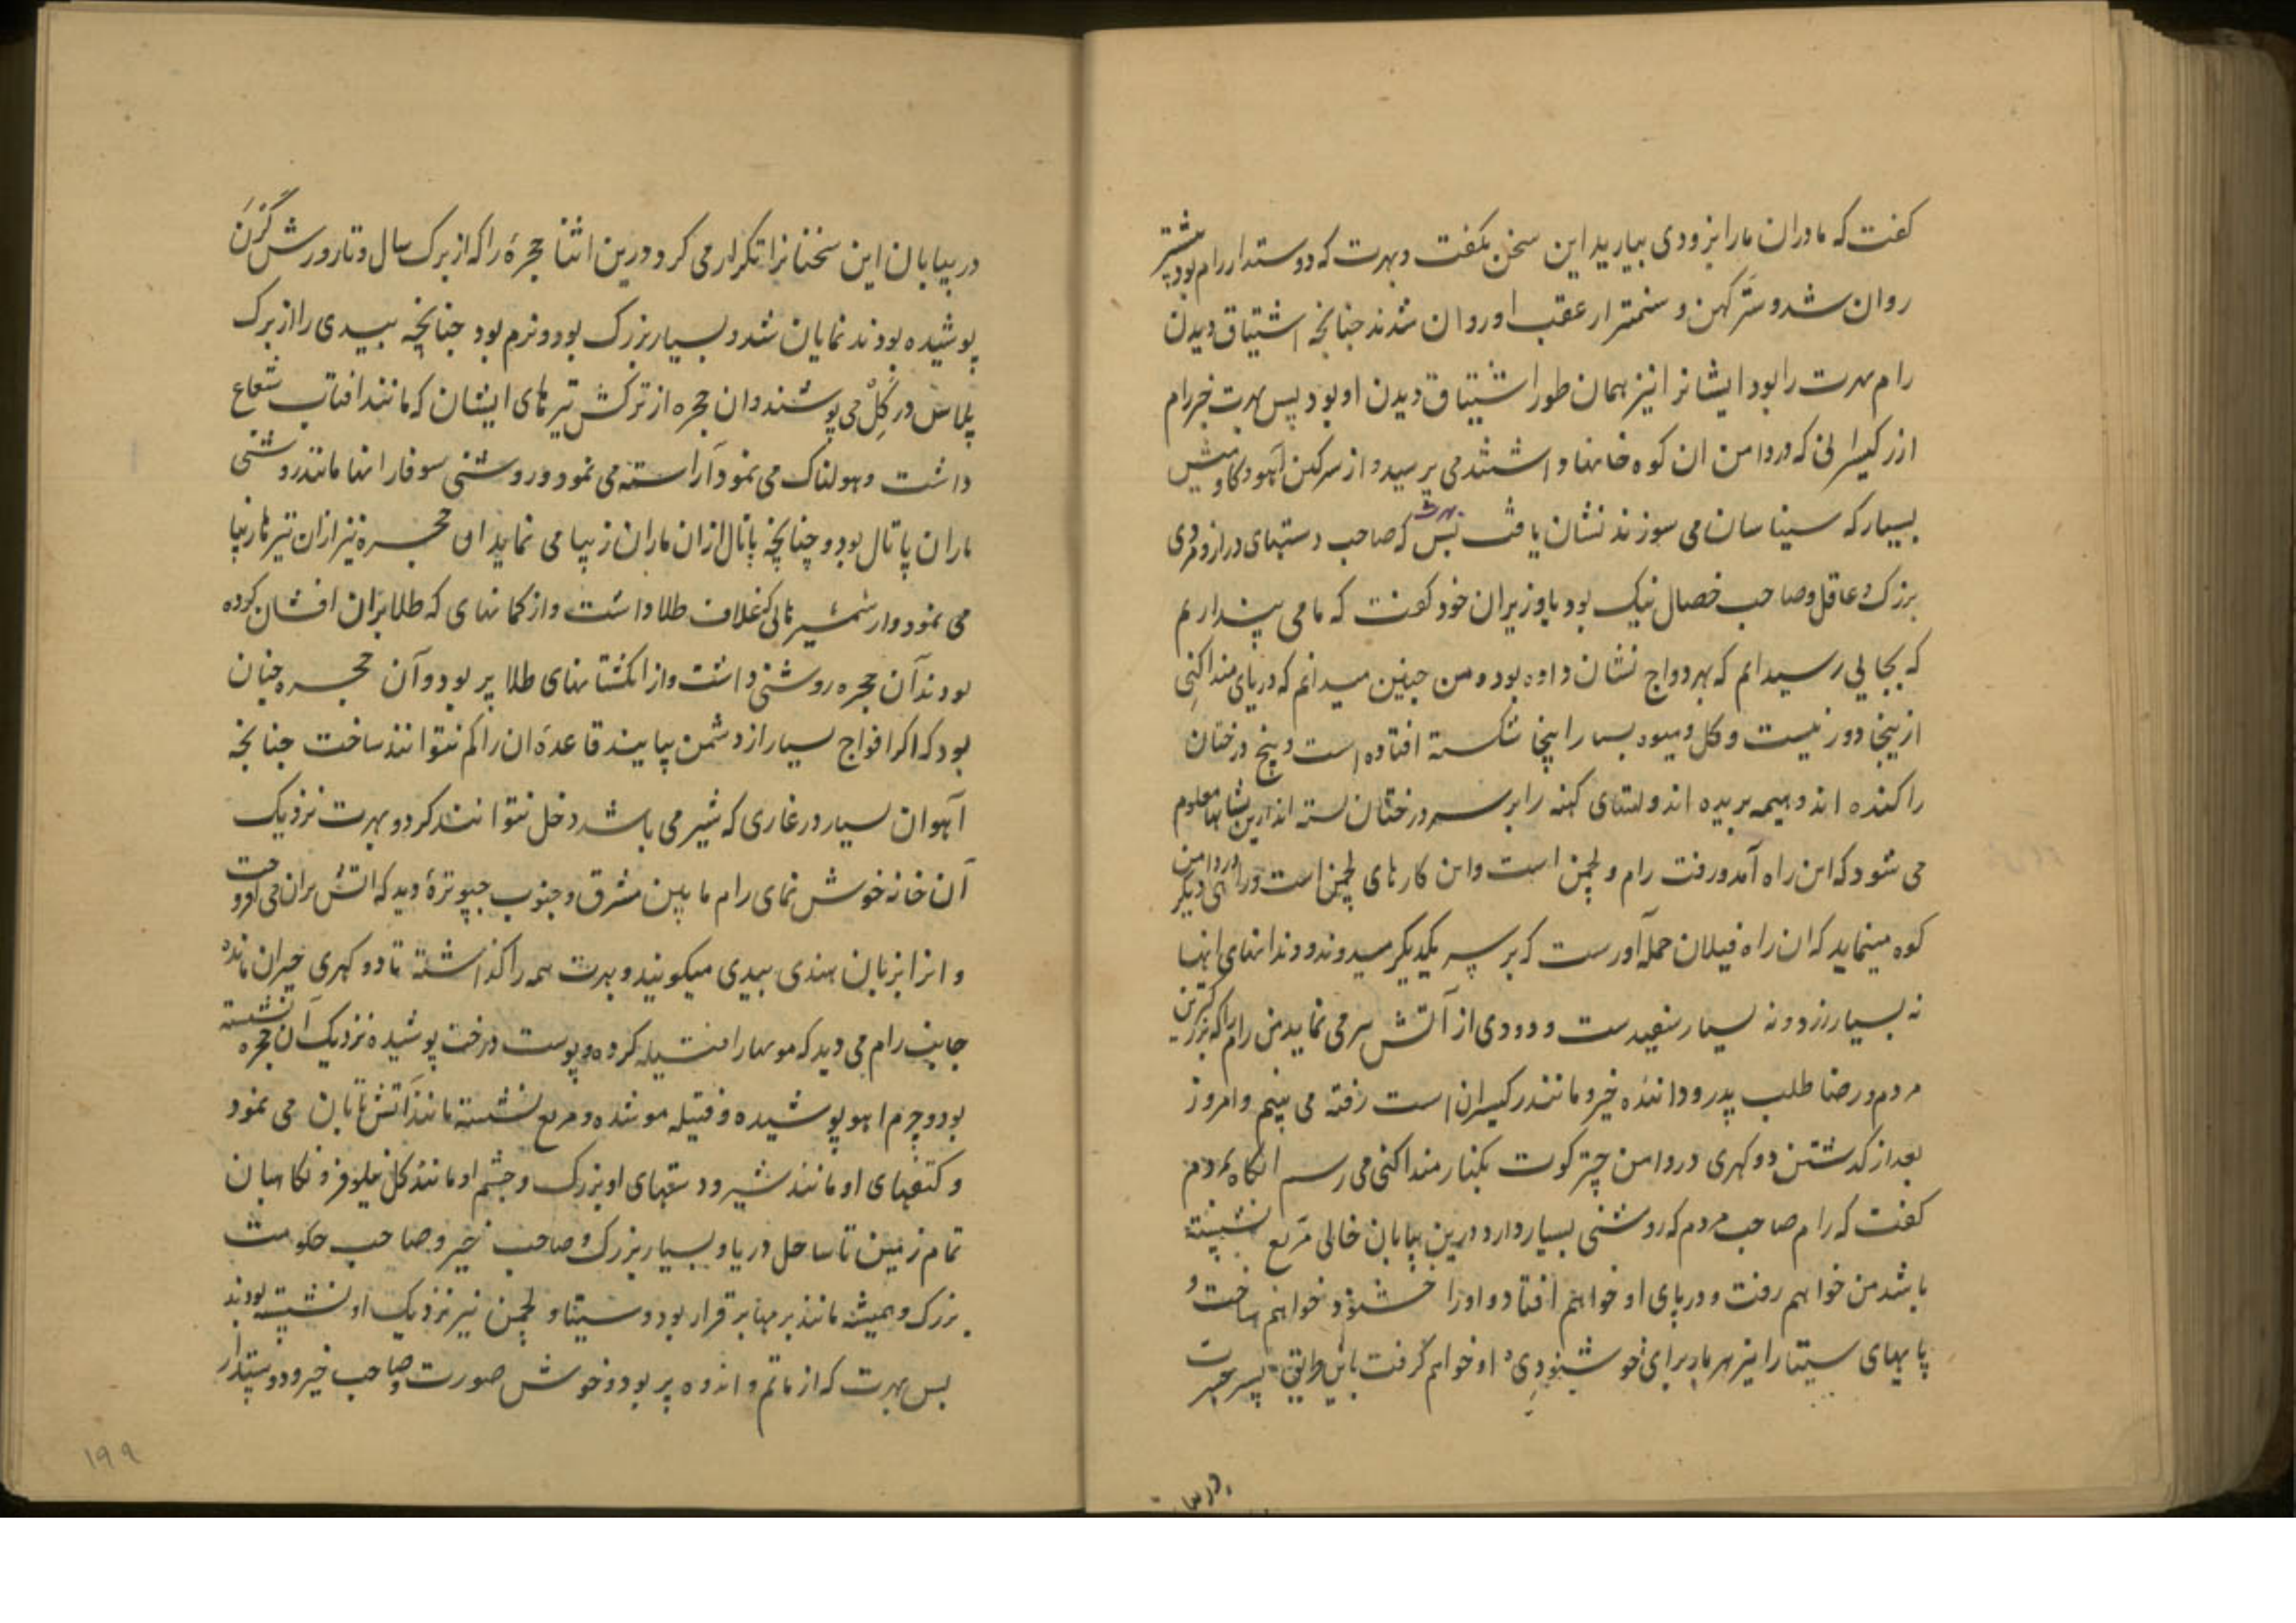 کفت که مادران مارا بزودی بیارید این سخن بکفت و بهرت که دوستدار رام بود پیشتر
روان شد و ستر کهن و سمنتر از عقب او روان شدند چنانچه اشتیاق دیدن
رام بهرت را بود ایشانرا نیز همان طور اشتیاق دیدن او بود پس بهرت خبر رام
از رکیسرانی که در دامن ان کوه خانها داشتند می پرسید و از سرکین آهو و کاومیش
بسیار که سیناسان می سوزند نشان یافت پس بهرت که صاحب دستهای دراز و مردی
بزرک و عاقل و صاحب خصال نیک بود با وزیران خود کفت که ما می پنداریم
که بجایی رسیده ایم که بهردواج نشان داده بود و من چنین میدانم که دریای منداکنی
ازینجا دور نیست و کل و میوه بسیار اینجا شکسته افتاده است و بیخ درختان
را کنده اند و هیمه بریده اند و لتهای کهنه را بر سر درختان بسته اند ازین نشانها معلوم
می شود که این راه آمد و رفت رام و لچمن است و این کارهای لچمن است و راهی دیکر در دامن
کوه مینماید که ان راه فیلان حمله آورست که بر سر یکدیکر میدوند و دندانهای انها
نه بسیار زرد و نه بسیار سفیدست و دودی از آتش بر می نماید من رام را که بزرکترین
مردم در رضا طلب پدر و داننده خیر و مانند رکیسران است رفته می بینم و امروز
بعد از کذشتن دو کهری در دامن چترکوت بکنار منداکنی می رسم انکاه بمردم
کفت که رام صاحب مردم که روشنی بسیار دارد درین بیابان خالی مربع نشسته
باشد من خواهم رفت و در پای او خواهم افتاد و او را خشنود خواهم ساخت و
پایهای سیتا را نیز هر بار برای خوشنودی او خواهم کرفت باین طریق پسر جسرت
در بیابان این سخنانرا تکرار می کرد و درین اثنا حجرهٔ را که از برک سال و تار و رش کرن
پوشیده بودند نمایان شد و بسیار بزرک بود و نرم بود چنانچه بیدی را از برک
پلاس در کل می پوشند و ان حجره از ترکش تیرهای ایشان که مانند افتاب شعاع
داشت و هولناک می نمود آراسته می نمود و روشنی سوفار انها مانند روشنی
ماران پاتال بود و چنانچه پاتال از ان ماران زیبا می نماید ان حجره نیز از ان تیرها زیبا
می نمود و از شمشیرهائی که غلاف طلا داشت و از کمانهای که طلا بران افشان کرده
بودند آن حجره روشنی داشت و از انکشتانهای طلا پر بود و آن حجره چنان
بود که اکر افواج بسیار از دشمن بیایند قاعدهٔ ان را کم نتوانند ساخت چنانچه
آهوان بسیار در غاری که شیر می باشد دخل نتوانند کرد و بهرت نزدیک
آن خانه خوش نمای رام مابین مشرق و جنوب چبوترهٔ دید که اتش بران می افروخت
و انرا بزبان هندی بیدی میکویند و بهرت همه را کذاشته تا دو کهری حیران مانده
جانب رام می دید که موها را فتیله کرده و پوست درخت پوشیده نزدیک آن حجره نشسته
بود و چرم اهو پوشیده و فتیله مو شده و مربع نشسته مانند آتش تابان می نمود
و کتفهای او مانند شیر و دستهای او بزرک و چشم او مانند کل نیلوفر و نکاهبان
تمام زمین تا ساحل دریا و بسیار بزرک و صاحب خیر و صاحب حکومت
بزرک و همیشه مانند برمها برقرار بود و سیتا و لچمن نیز نزدیک او نشسته بودند
پس بهرت که از ماتم و اندوه پر بود و خوش صورت و صاحب خیر و دوستدار
۱۹۹